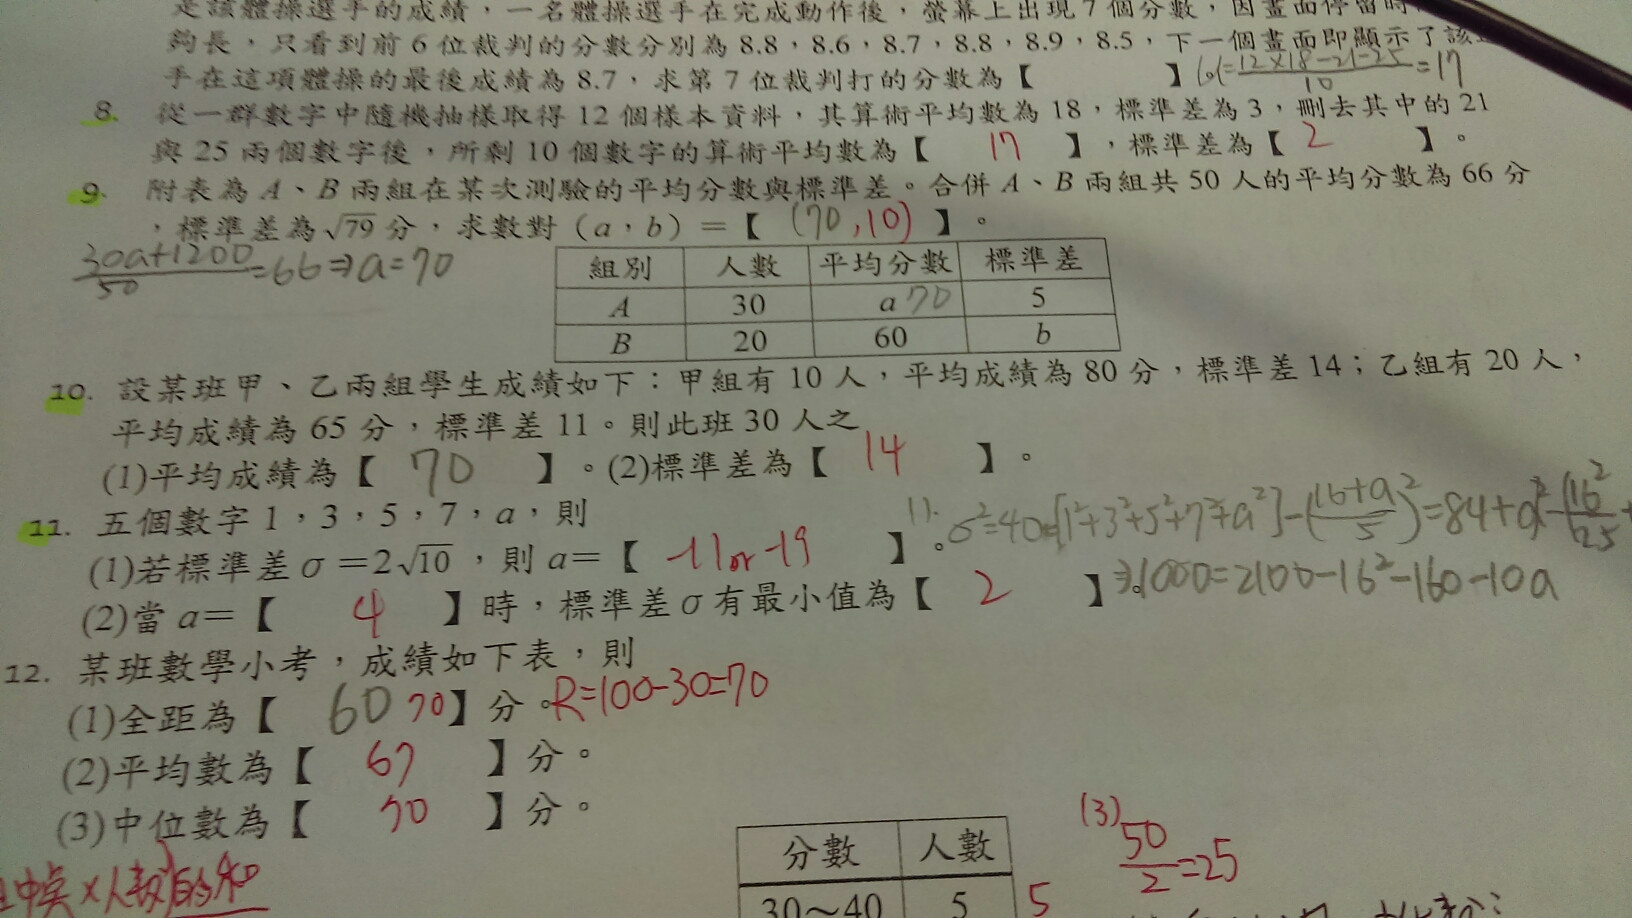 是該體操選手的成績，一名體操選手在完成動作後，螢幕上出現7個分數，因畫面停留時
夠長，只看到前6位裁判的分數分別為8.8，8.6，8.7，8.8，8.9，8.5，下一個畫面即顯示了該
手在這項體操的最後成績為8.7，求第7位裁判打的分數為【 】 12×18-21-25/10=17
8. 從一群數字中隨機抽樣取得12個樣本資料，其算術平均數為18，標準差為3，刪去其中的21
與25兩個數字後，所剩10個數字的算術平均數為【 17 】，標準差為【 2 】。
9. 附表為A、B兩組在某次測驗的平均分數與標準差。合併A、B兩組共50人的平均分數為66分
，標準差為√79分，求數對（a，b）＝【 (70,10) 】。
30a+1200/50=66⇒a=70
組別 人數 平均分數 標準差
A 30 a 70 5
B 20 60 b
10. 設某班甲、乙兩組學生成績如下：甲組有10人，平均成績為80分，標準差14；乙組有20人，
平均成績為65分，標準差11。則此班30人之
(1)平均成績為【 70 】。(2)標準差為【 14 】。
11. 五個數字1，3，5，7，a，則
(1)若標準差σ＝2√10，則a＝【 -11or-19 】。
(2)當a＝【 4 】時，標準差σ有最小值為【 2 】。
1). σ²=40=[1²+3²+5²+7²+a²]-(16+a/5)²=84+a²-(16²/25+
⇒1000=2100-16²-160-10a
12. 某班數學小考，成績如下表，則
(1)全距為【 60 70】分。R=100-30=70
(2)平均數為【 67 】分。
(3)中位數為【 70 】分。
×人數)的和
分數 人數
30～40 5 5
(3) 50/2=25